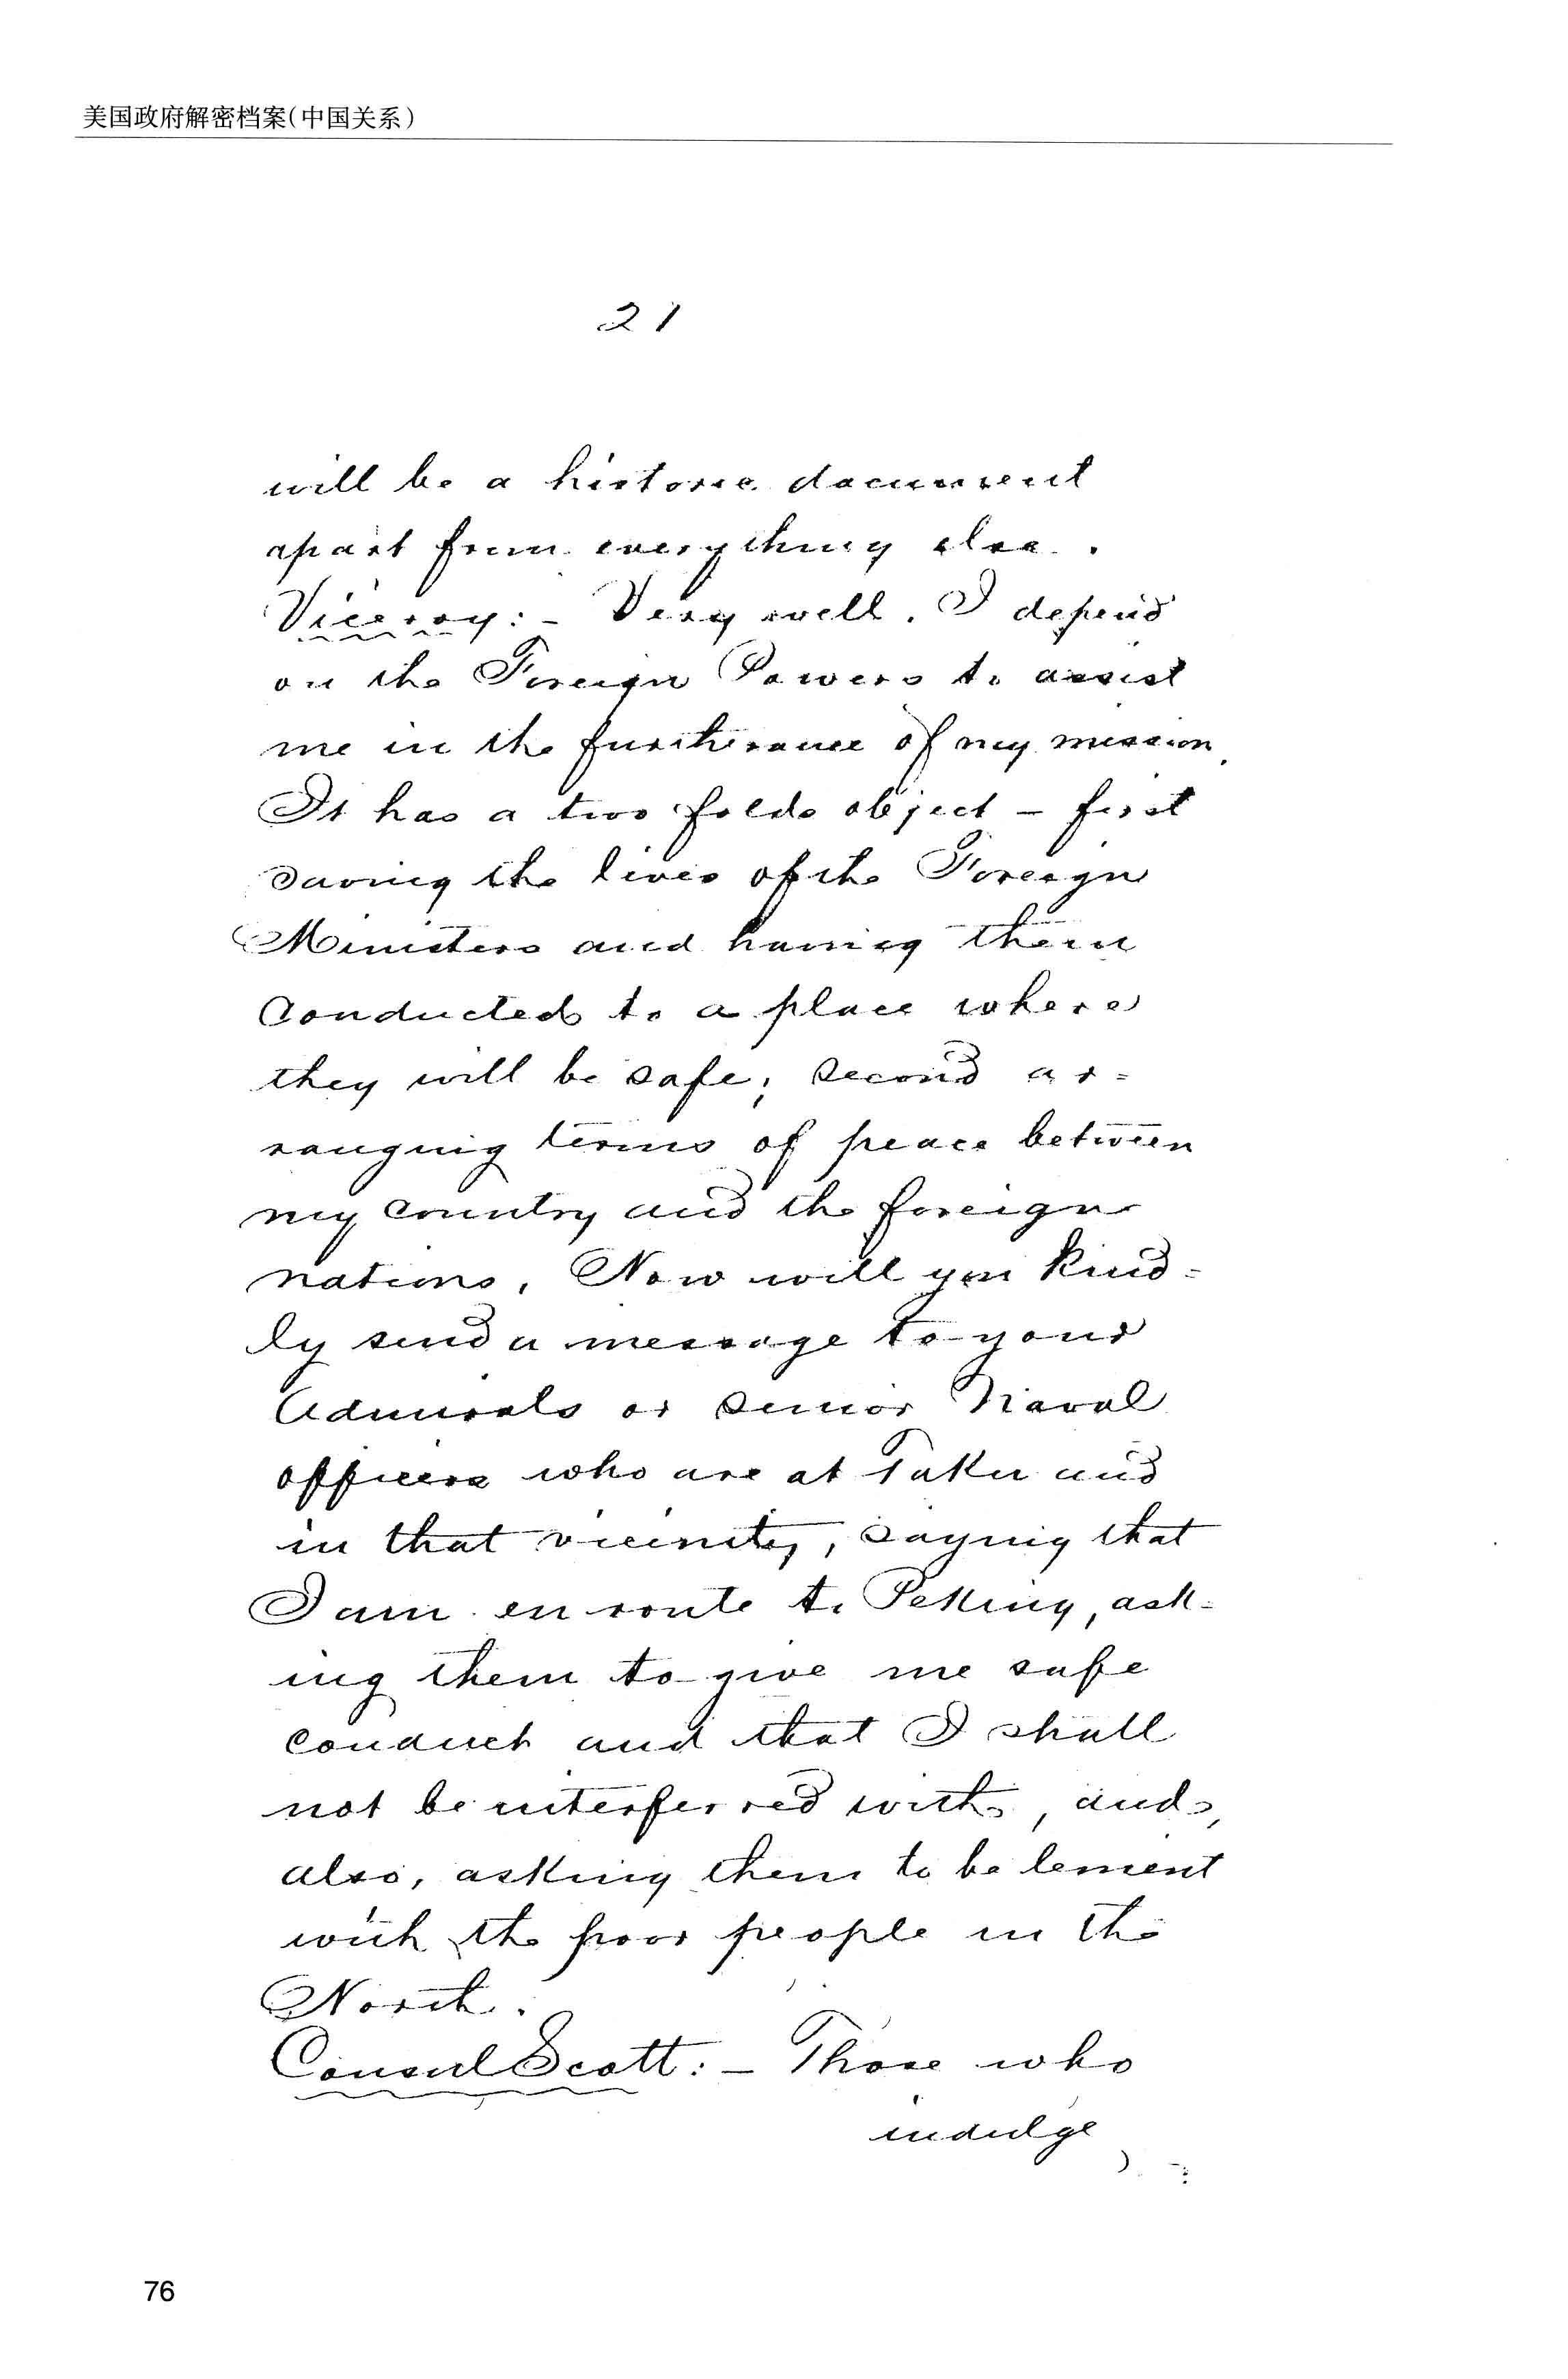 美国政府解密档案(中国关系)
21
will be a historic document
apart from everything else.
Viceroy:- Very well. I depend
on the Foreign Powers to assist
me in the furtherance of my mission.
It has a two fold object - first
saving the lives of the Foreign
Ministers and having them
Conducted to a place where
they will be safe; second ar=
ranging terms of peace between
my Country and the foreign
nations. Now will you kind=
ly send a message to your
Admirals or senior Naval
officers who are at Taku and
in that vicinity, saying that
I am en route to Peking, ask=
ing them to give me safe
conduct and that I shall
not be interferred with, and,
also, asking them to be lenient
with the poor people in the
North.
Consul Scott:- Those who
indulge
76